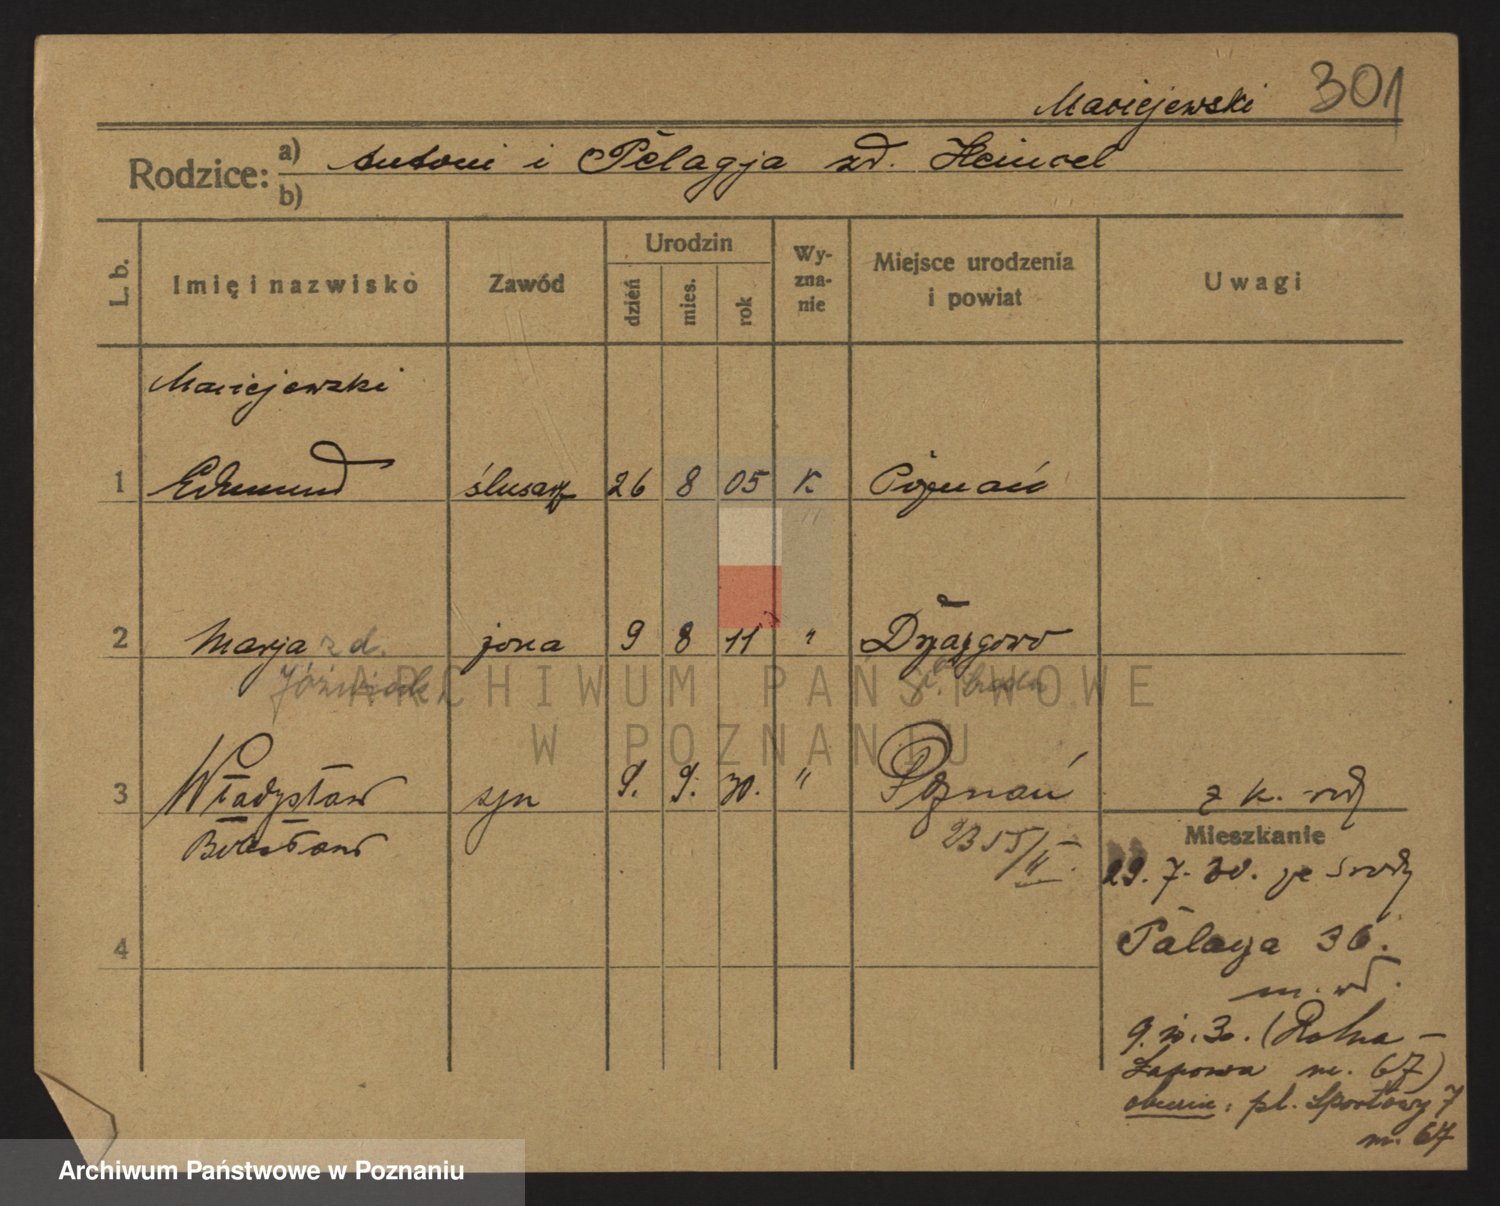 Maciejewski 301
Rodzice: a) Antoni i Pelagja zd. Heincel
b)
L. b. Imię i nazwisko Zawód Urodzin dzień mies. rok Wyznanie Miejsce urodzenia i powiat Uwagi
Maciejewski
1 Edmund ślusarz 26 8 05 K Poznań
2 Marja zd. żona 9 8 11 " Drzązgowo
Jóźwiak p. Środa
ARCHIWUM PAŃSTWOWE
W POZNANIU
3 Władysław syn 9. 9. 30. " Poznań z k.
Bolesław 2355/II
Mieszkanie
29. 7. 30. ze Środy
4 Palacza 36.
9. 10. 30. (Rolna –
Łanowa m. 67)
obecnie: pl. Sportowy 7
m. 67
Archiwum Państwowe w Poznaniu